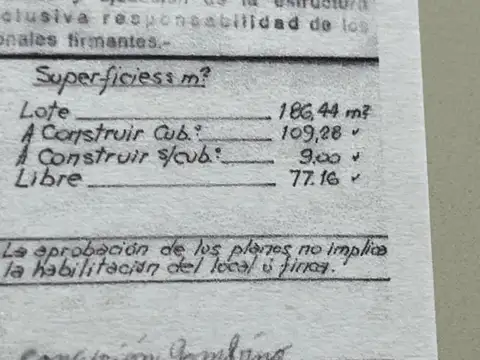 de la estructura
clusiva responsabilidad de los
onales firmantes.-
Superficiess m²
Lote 186,44 m²
A Construir Cub.: 109,28 "
A Construir s/cub.: 9,00 "
Libre 77.16 "
La aprobación de los planos no implica
la habilitación del local ú finca.